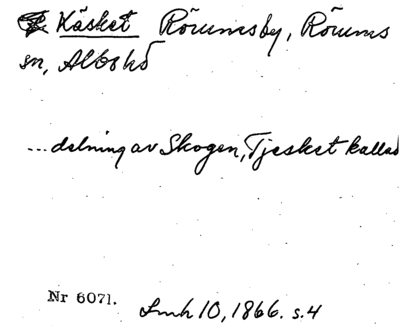 Käsket Rörumsby, Rörums
sn, Albo hd
...delning av Skogen, Tjesket kallad
Nr 6071.
Lmh 10, 1866. s. 4